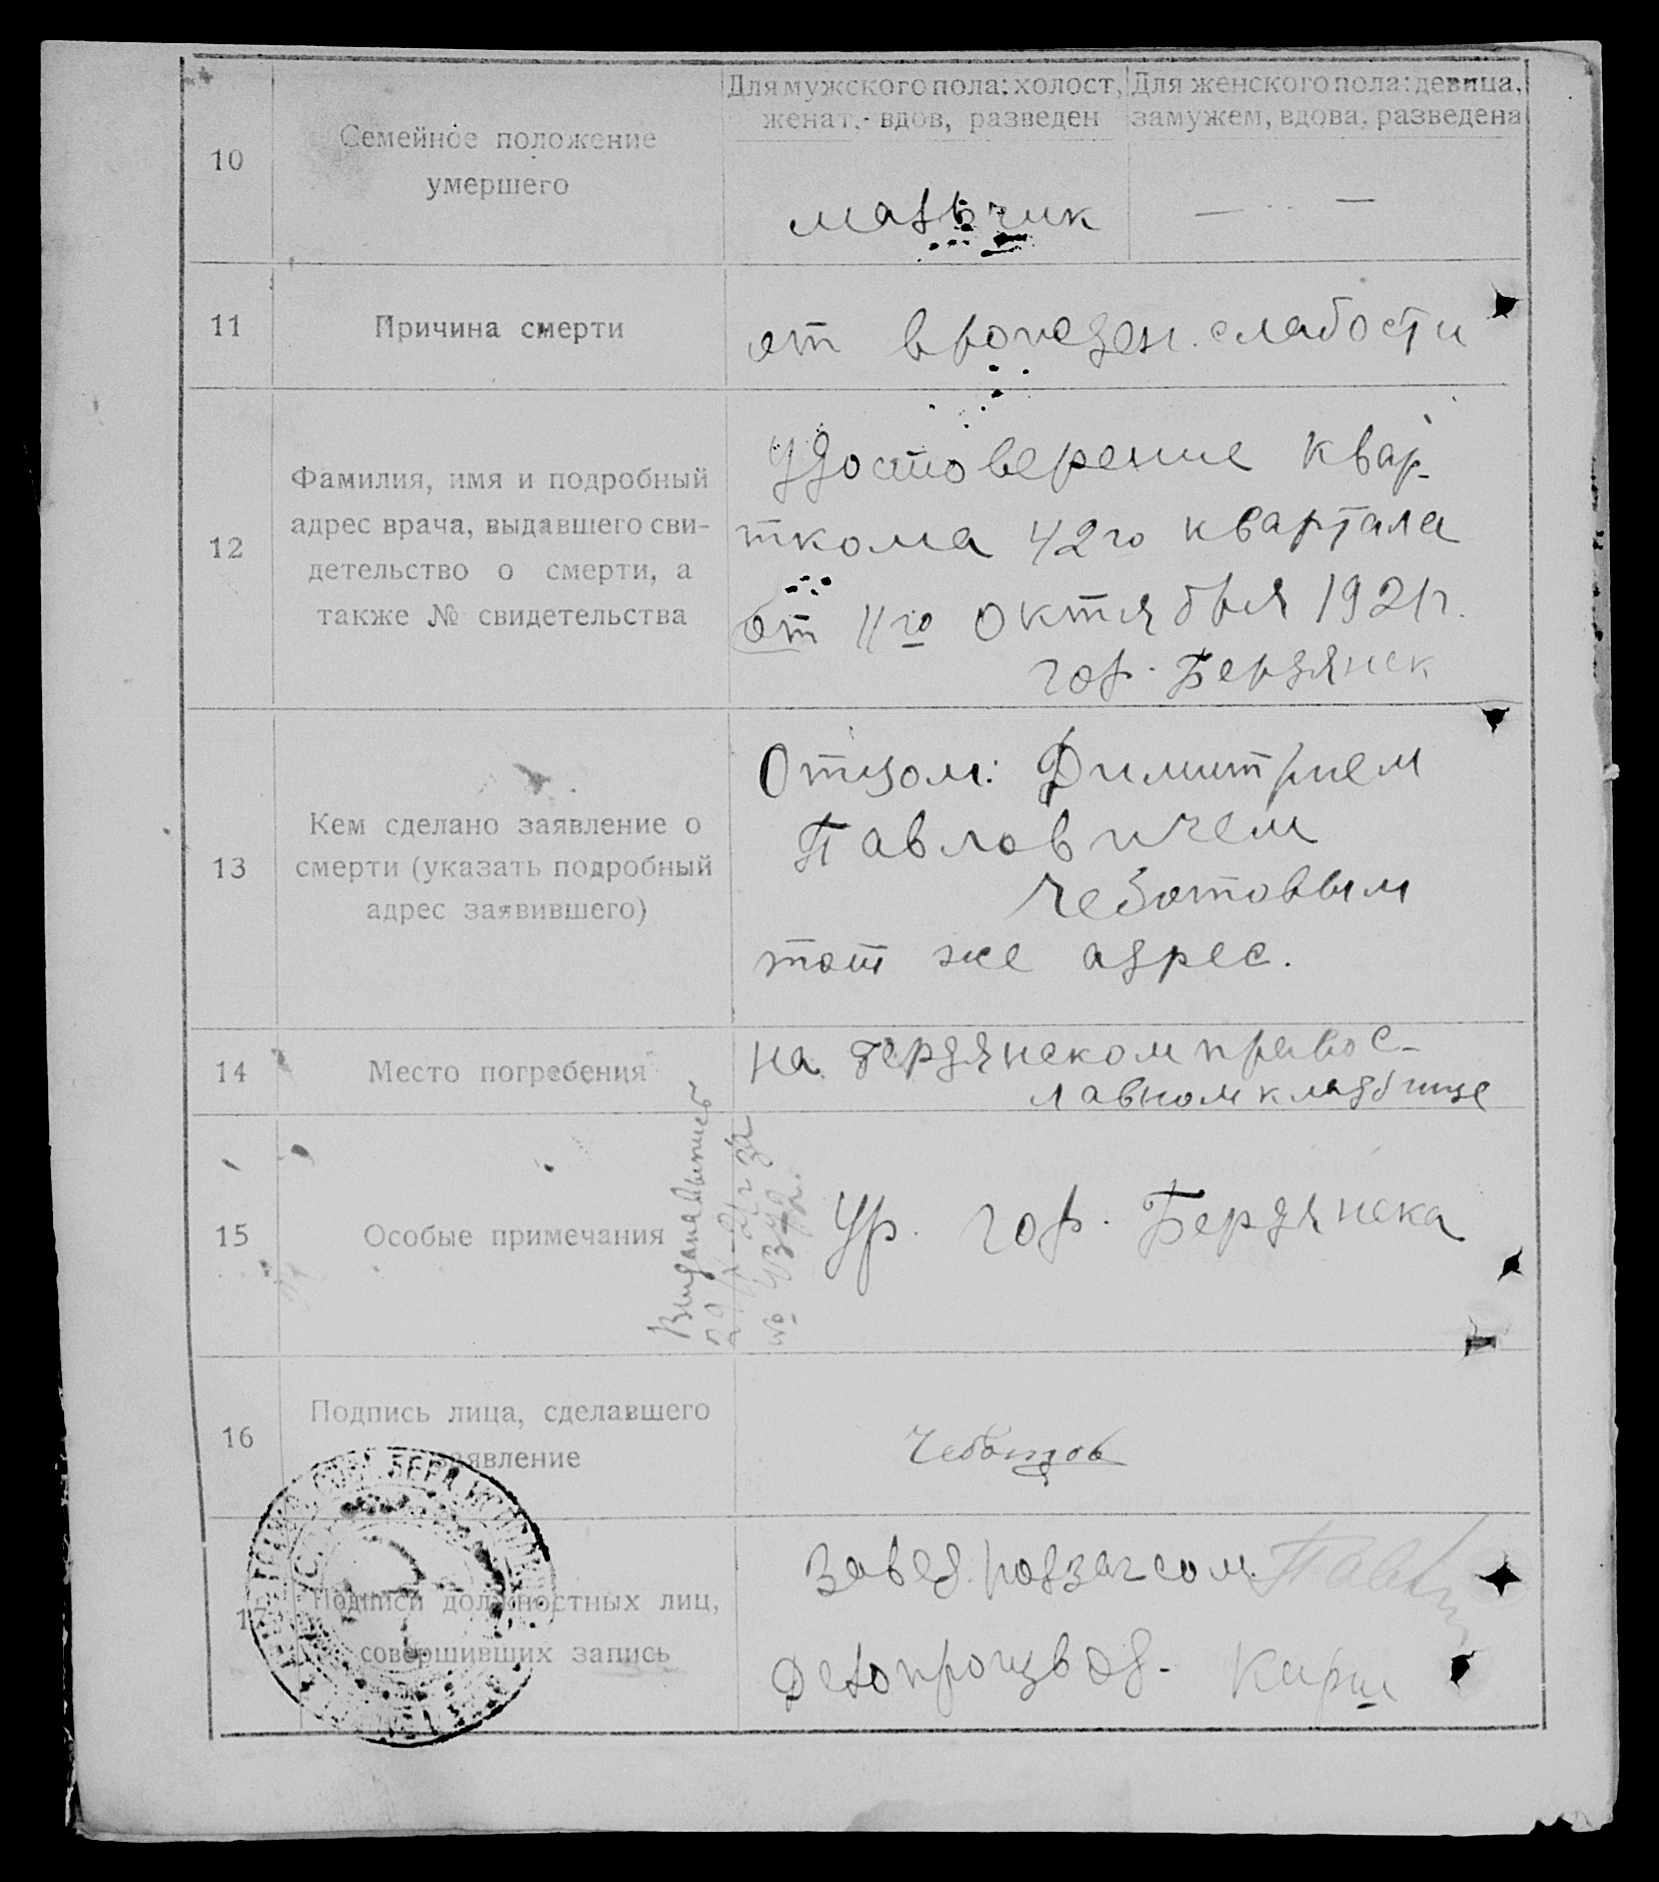 Для мужского пола: холост, женат, вдов, разведен
Для женского пола: девица, замужем, вдова, разведена
10
Семейное положение
умершего
мальчик
— —
11
Причина смерти
от врожден. слабости
12
Фамилия, имя и подробный
адрес врача, выдавшего сви-
детельство о смерти, а
также № свидетельства
Удостоверение квар-
ткома 42го квартала
от 11го октября 1921г.
гор. Бердянск
13
Кем сделано заявление о
смерти (указать подробный
адрес заявившего)
Отцом: Димитрием
Павловичем
Чеботовым
тот же адрес.
14
Место погребения
на Бердянском правос-
лавном кладбище
15
Особые примечания
Выдана выпись
за
№
Ур. гор. Бердянска
16
Подпись лица, сделавшего
заявление
Чеботов
17
Подписи должностных лиц,
совершивших запись
Завед. подзагсом
Делопроизвод.